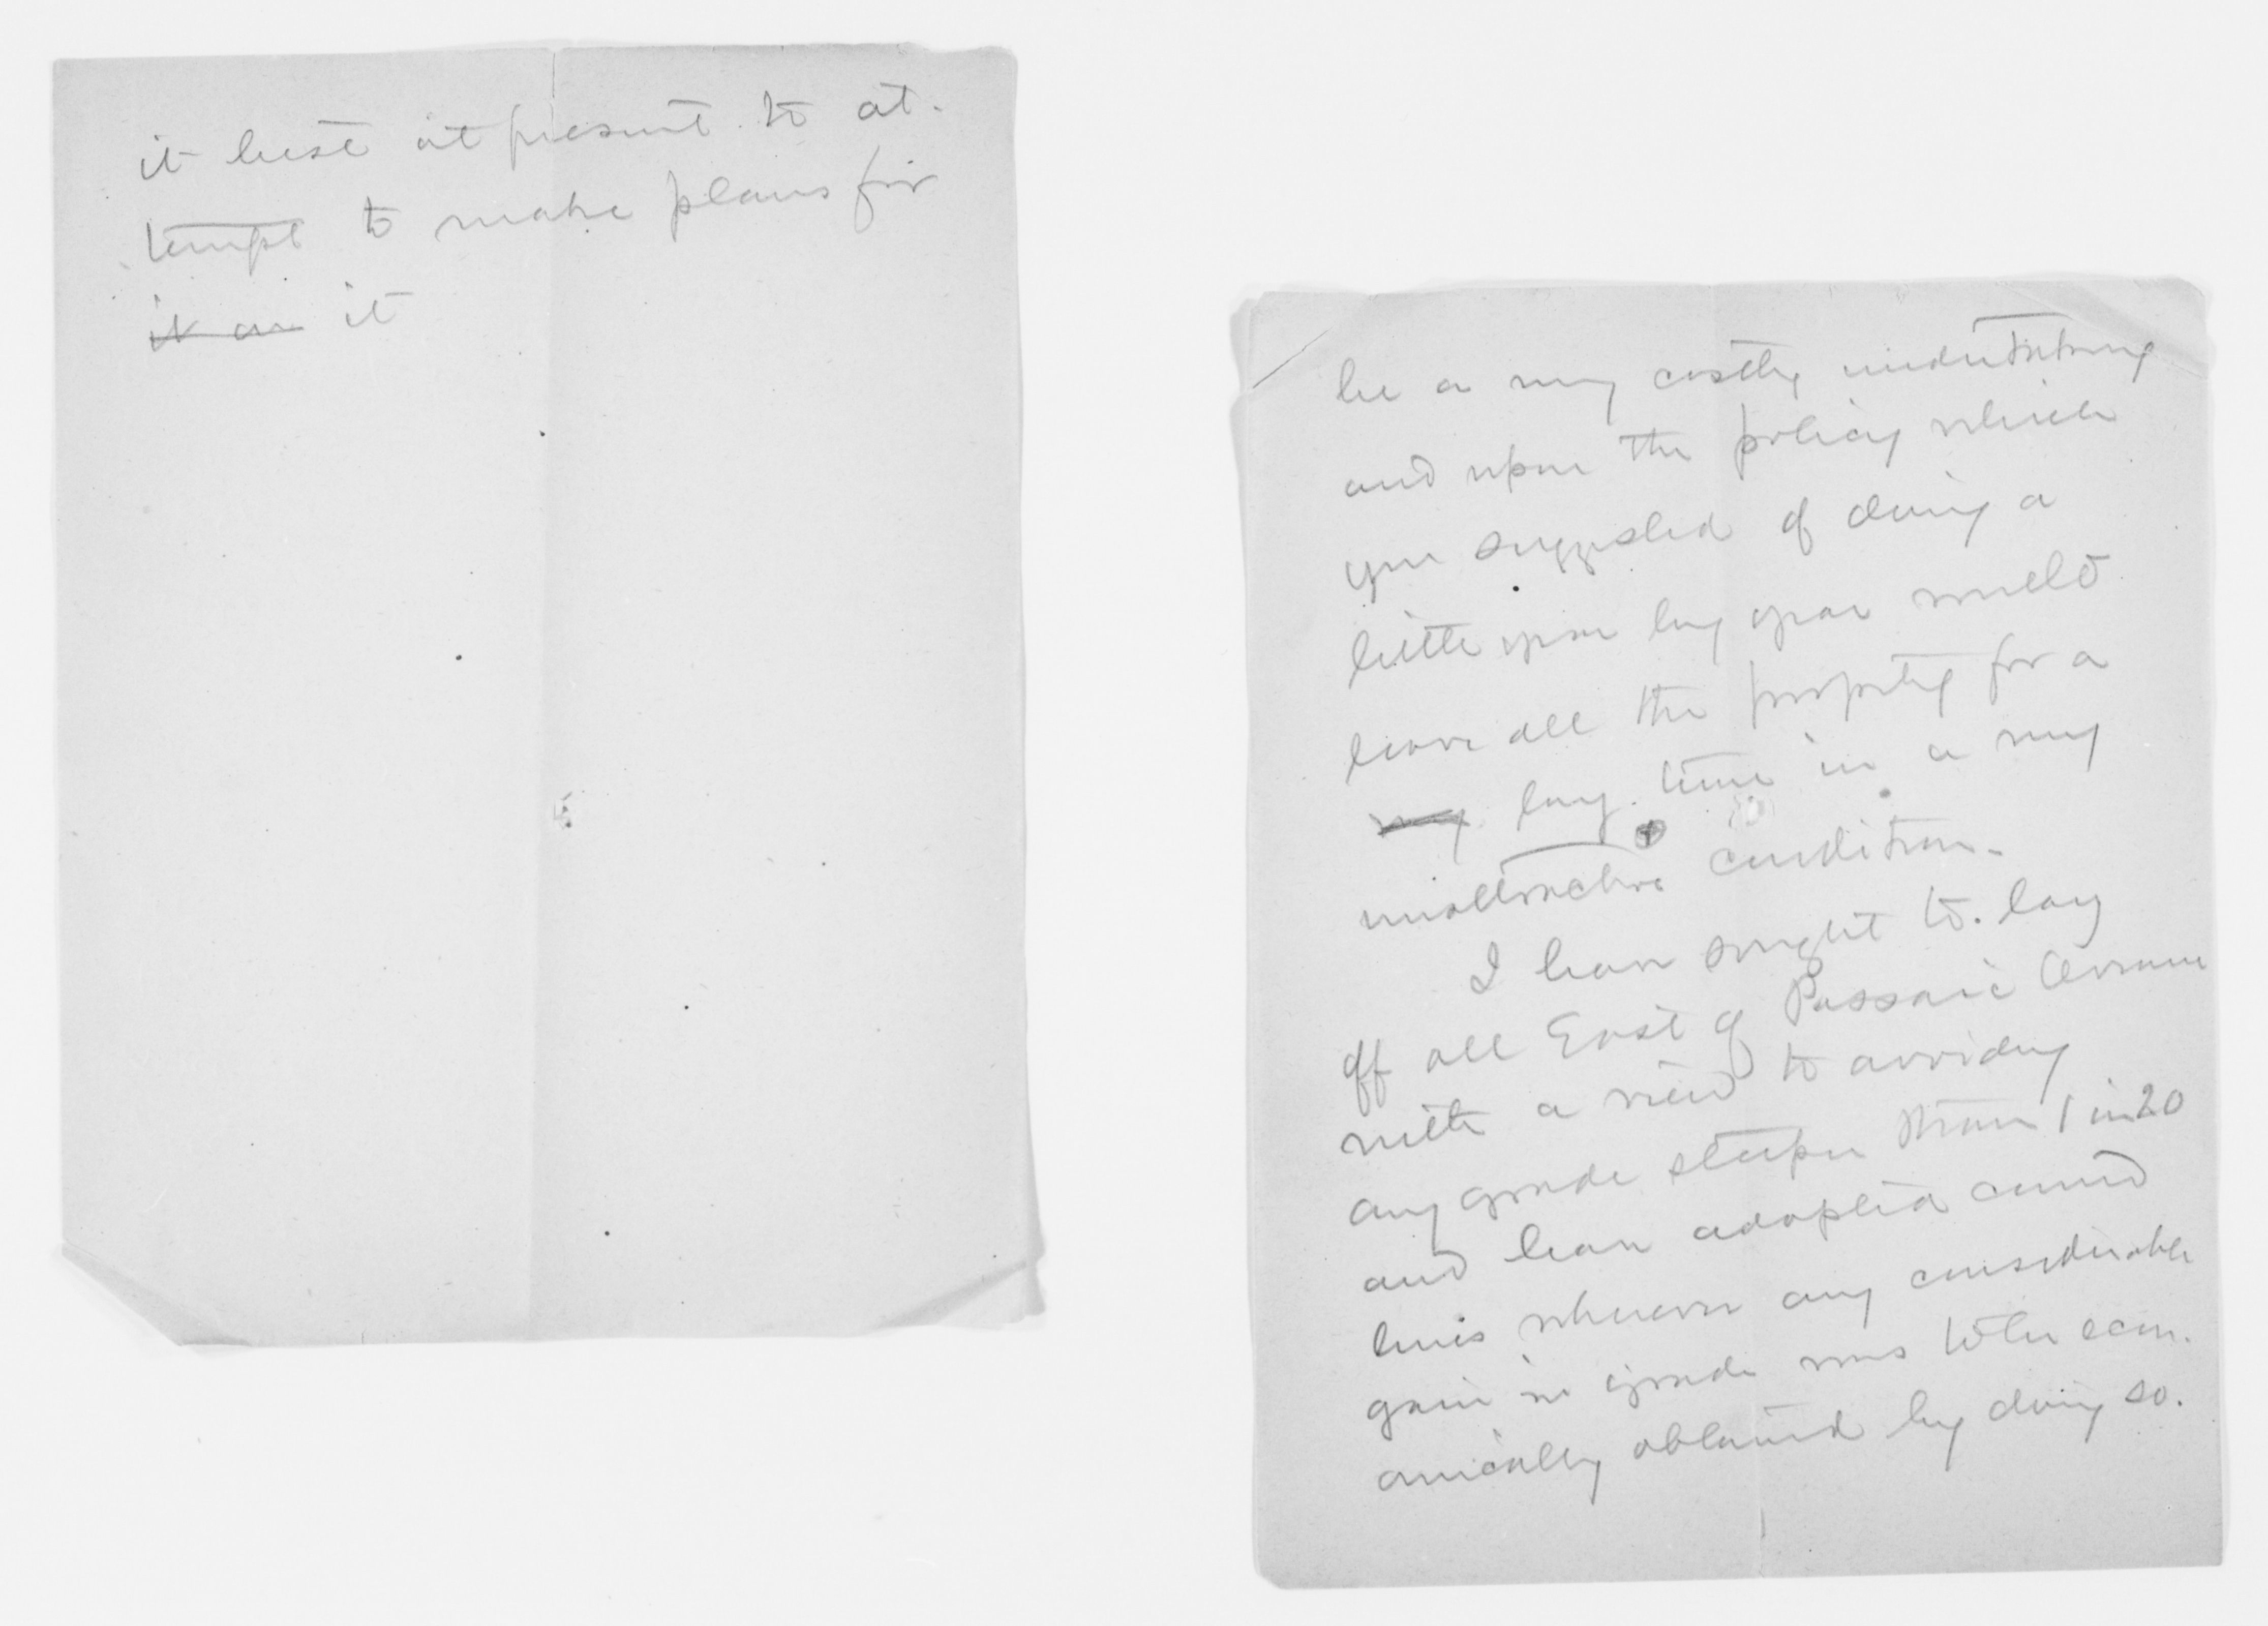 it best at present to at-
tempt to make plans for
it on it
be a very costly undertaking
and upon the policy which
you suggested of doing a
little year by year would
leave all the property for a
very long time in a very
unattractive condition.
I have sought to lay
off all East of Passaic Avenue
with a view to avoiding
any grade steeper than 1 in 20
and have adopted curved
lines wherever any considerable
gain in grade was to be econ-
omically obtained by doing so.